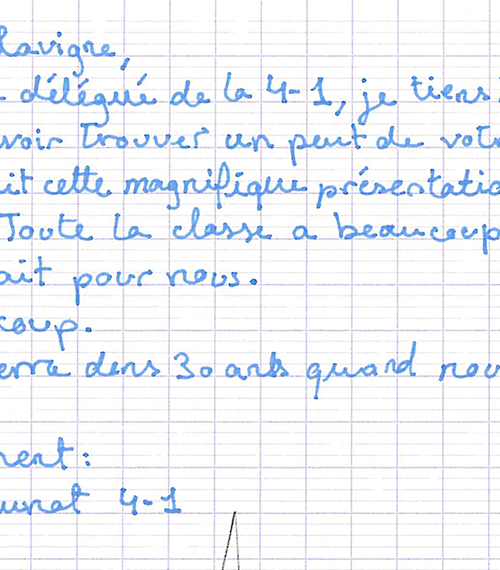 Lavigne,
délégué de la 4-1, je tiens
voir trouver un peut de votr
it cette magnifique présentatio
Toute la classe a beaucoup
ait pour nous.
coup.
erra dans 30 ans quand nou
ment:
4-1